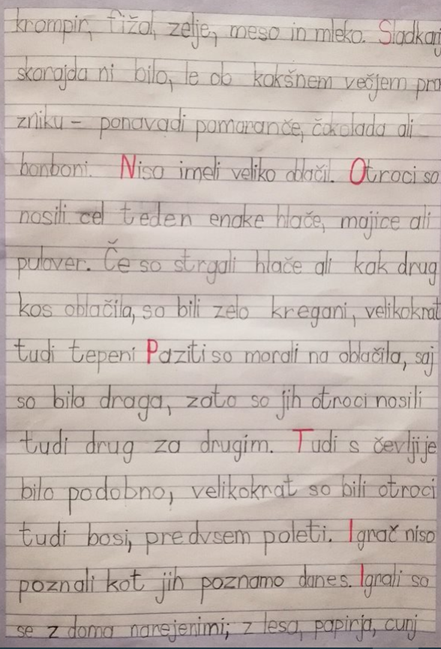 krompir, fižol, zelje, meso in mleko. Sladkarij
skorajda ni bilo, le ob kakšnem večjem pra
zniku - ponavadi pomaranče, čokolada ali
bonboni. Niso imeli veliko oblačil. Otroci so
nosili cel teden enake hlače, majice ali
pulover. Če so strgali hlače ali kak drug
kos oblačila, so bili zelo kregani, velikokrat
tudi tepeni Paziti so morali na oblačila, saj
so bila draga, zato so jih otroci nosili
tudi drug za drugim. Tudi s čevlji je
bilo podobno, velikokrat so bili otroci
tudi bosi, predvsem poleti. Igrač niso
poznali kot jih poznamo danes. Igrali so
se z doma narejenimi; z lesa, papirja, cunj